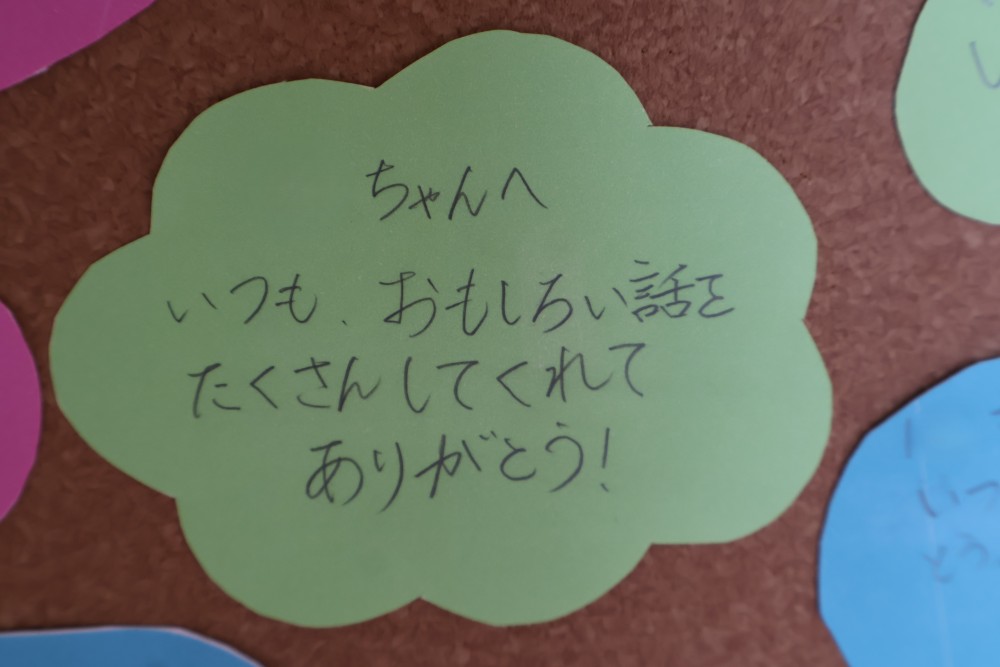 ちゃんへ
いつも、おもしろい話を
たくさんしてくれて
ありがとう!
いつ
とう